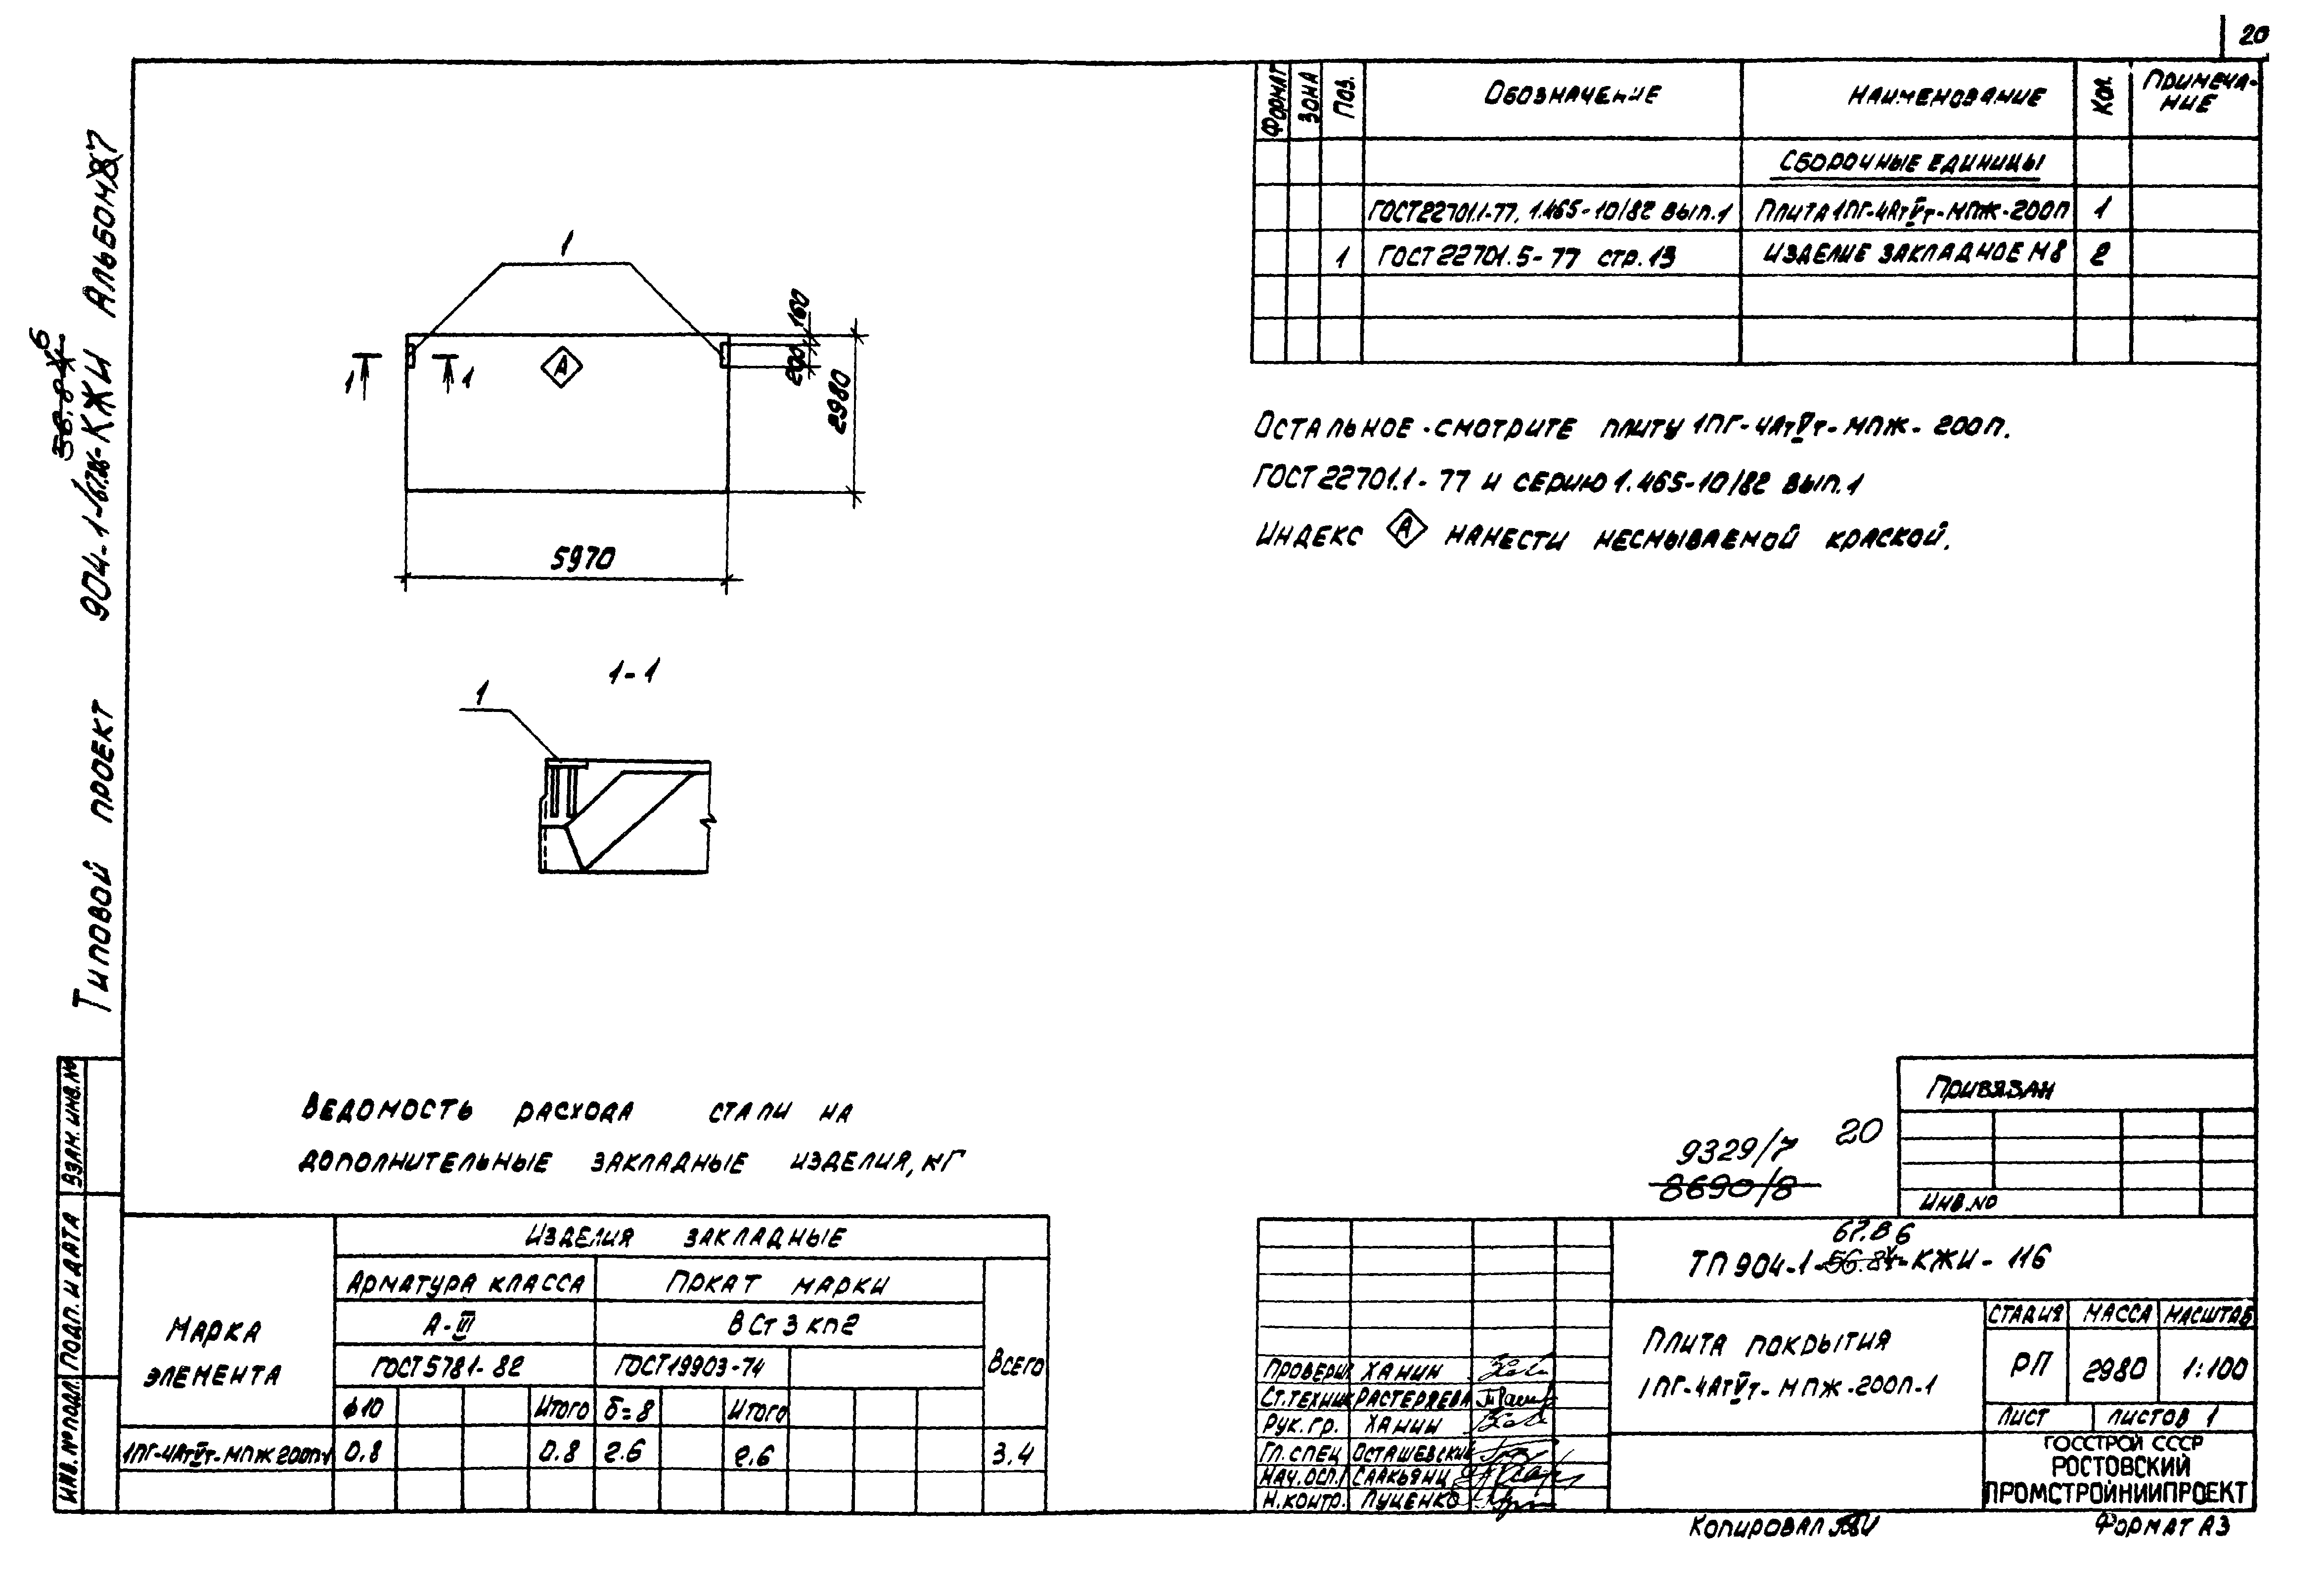 20
Формат
Зона
Поз.
Обозначение
Наименование
Кол.
Примеча-
ние
Сборочные единицы
ГОСТ 22701.1-77, 1.465-10/82 вып.1 Плита 1ПГ-4АтⅤт-МПЖ-200П 1
1 ГОСТ 22701.5-77 стр.13 Изделие закладное М8 2
Остальное смотрите плиту 1ПГ-4АтⅤт-МПЖ-200П.
ГОСТ 22701.1-77 и серию 1.465-10/82 вып.1
Индекс А нанести несмываемой краской.
1
160
200
2980
1 1
А
5970
1-1
1
Типовой проект 904-1-67.86-КЖИ Альбом 7
56.84
6
Взам. инв.№
Подп. и дата
Инв.№ подл.
Ведомость расхода стали на
дополнительные закладные изделия, кг
Марка
элемента
Изделия закладные
Арматура класса
Пркат марки
А-Ⅲ
ВСт3кп2
ГОСТ 5781-82
ГОСТ 19903-74
Всего
ф10 Итого δ=8 Итого
1ПГ-4АтⅤт-МПЖ200П-1 0.8 0.8 2.6 2.6 3.4
9329/7 20
8690/8
Привязан
Инв.№
67.86
ТП 904-1-56.84-КЖИ-116
Плита покрытия
1ПГ-4АтⅤт-МПЖ-200П-1
Стадия Масса Масштаб
РП 2980 1:100
Лист Листов 1
ГОССТРОЙ СССР
РОСТОВСКИЙ
ПРОМСТРОЙНИИПРОЕКТ
Проверил Ханин
Ст.техник Растеряева
Рук. гр. Ханин
Гл. спец Осташевский
Нач. осп.1 Саакьянц
Н.контр. Луценко
Копировал
Формат А3